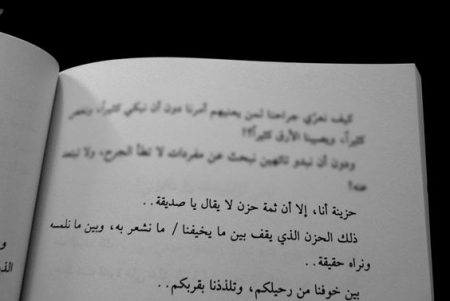 كيف نعزي جراحنا لمن يعنيهم أمرنا دون أن نبكي كثيراً،
كثيراً، ويصيبنا الأرق كثيراً؟!
ودون أن نبدو تائهين نبحث عن مفردات لا تطأ الجرح، ولا تبتعد
عنه!
حزينة أنا، إلا أن ثمة حزن لا يقال يا صديقة..
ذلك الحزن الذي يقف بين ما يخيفنا / ما نشعر به، وبين ما نلمسه
ونراه حقيقة..
بين خوفنا من رحيلكم، وتلذذنا بقربكم..